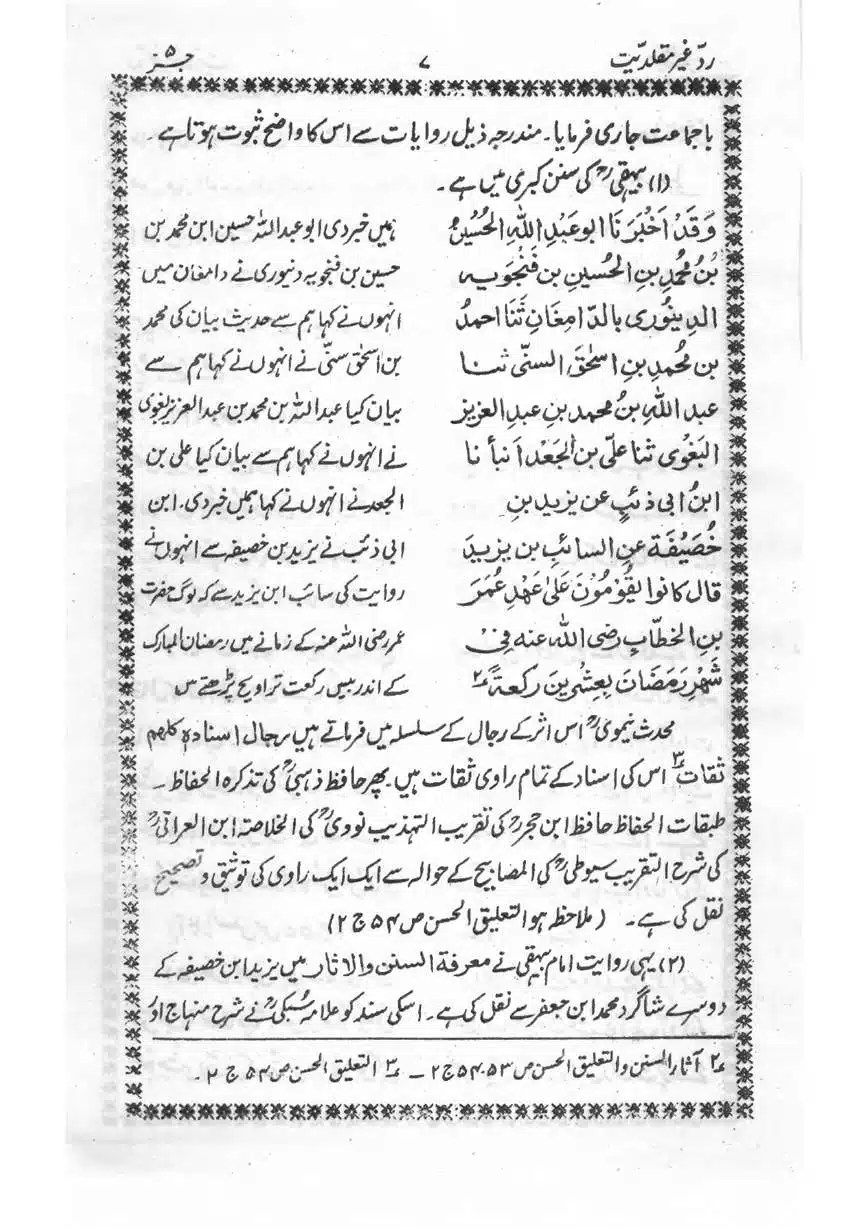 ردّ غیر مقلدیّت ۷ جز ۵
باجماعت جاری فرمایا۔ مندرجہ ذیل روایات سے اس کا واضح ثبوت ہوتا ہے۔
(۱) بیہقیؒ کی سنن کبریٰ میں ہے۔
وَقَدْ اَخْبَرَنَا ابو عَبْدِ اللهِ الْحُسَيْنُ ہمیں خبر دی ابو عبداللہ حسین ابن محمد بن
بْنُ مُحَمَّدِ بنِ الْحُسَیْنِ بن فَنْجَویہ حسین بن فنجویہ دنیوری نے دامغان میں
الدینوری بالدّامغان ثَنَا احمدُ انہوں نے کہا ہم سے حدیث بیان کی محمد
بن مُحمد بنِ اسحٰقَ السنّی ثنا بن اسحٰق سنّی نے انہوں نے کہا ہم سے
عبد الله بنُ محمد بنِ عبدِ العزیز بیان کیا عبداللہ بن محمد بن عبد العزیز لبغوی
البَغوِی ثنا علیّ بن الجَعْد اَنبأنا نے انہوں نے کہا ہم سے بیان کیا علی بن
ابنُ ابی ذئبٍ عن یزید بنِ الجعد نے انہوں نے کہا ہمیں خبر دی۔ ابن
خُصَیْفَة عنِ السائبِ بن یزیدَ ابی ذئب نے یزید بن خصیفہ سے انہوں نے
قال کانوا یَقُوْمُوْنَ عَلیٰ عَهْدِ عُمَرَ روایت کی سائب ابن یزید سے کہ لوگ حضرت
بنِ الخطّابِ رضی الله عنه فِیْ عمر رضی اللہ عنہ کے زمانے میں رمضان المبارک
شَهْرِ رَمَضَانَ بِعِشْرِین رکعةً ۲؎ کے اندر بیس رکعت تراویح پڑھتے
محدث نیمویؒ اس اثر کے رجال کے سلسلہ میں فرماتے ہیں رجال اسنادہ کلهم
ثقات ۳؎ اس کی اسناد کے تمام راوی ثقات ہیں۔ پھر حافظ ذہبیؒ کی تذکرہ الحفاظ ۔
طبقات الحفاظ حافظ ابن حجرؒ کی تقریب التہذیب نوویؒ کی الخلاصتہ ابن العراقیؒ
کی شرح التقریب سیوطیؒ کی المصابیح کے حوالہ سے ایک ایک راوی کی توثیق و تصحیح
نقل کی ہے۔ (ملاحظہ ہو التعلیق الحسن ص ۵۴ ج ۲)
(۲) یہی روایت امام بیہقی نے معرفۃ السنن والاثار میں یزید ابن خصیفہ کے
دوسرے شاگرد محمد ابن جعفر سے نقل کی ہے۔ اسکی سند کو علامہ سُبکیؒ نے شرح منہاج اور
۲؎ آثار السنن والتعلیق الحسن ص ۵۳، ۵۴ ج ۲ ۔ ۳؎ التعلیق الحسن ص ۵۴ ج ۲۔